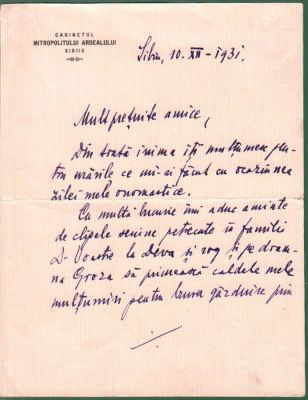 CABINETUL
MITROPOLITULUI ARDEALULUI
SIBIIU
Sibiu, 10. XII - 1931.
Mult prețuite amice,
Din toată inima îți mulțumesc pen-
tru urările ce mi-ai făcut cu ocaziunea
zilei mele onomastice.
Cu multă bucurie îmi aduc aminte
de clipele senine petrecute în familia
D-voastre la Deva și rog și pe doam-
na Groza să primească caldele mele
mulțumiri pentru buna găzduire prin